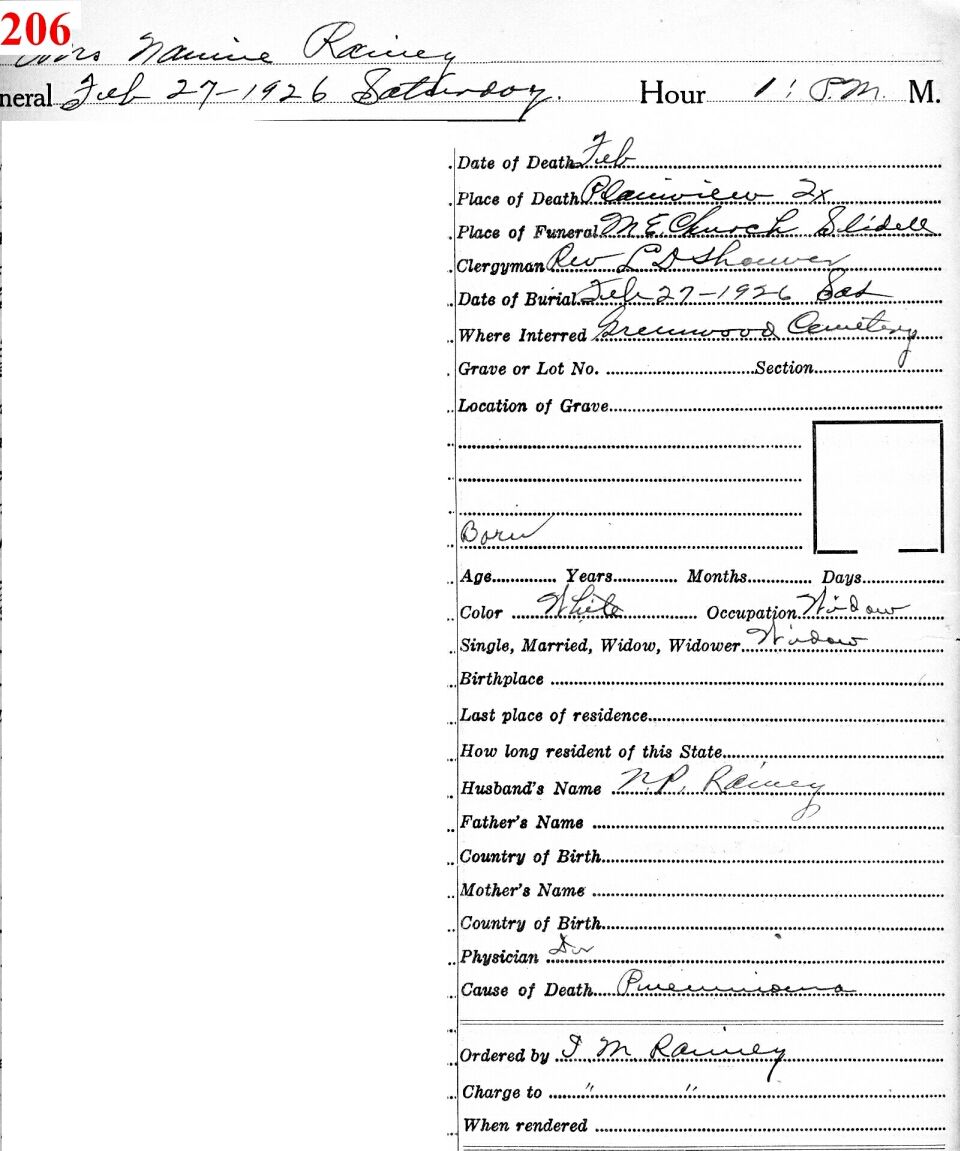 206
Mrs Nannie Rainey
neral Feb 27-1926 Satturday. Hour 1: P.M. M.
Date of Death Feb
Place of Death Plainview Tx
Place of Funeral M E Church Slidell
Clergyman Rev L D Shawver
Date of Burial Feb 27-1926 Sat
Where Interred Greenwood Cemetery
Grave or Lot No. Section
Location of Grave
Born
Age Years Months Days
Color White Occupation Widow
Single, Married, Widow, Widower Widow
Birthplace
Last place of residence
How long resident of this State
Husband's Name N.P. Rainey
Father's Name
Country of Birth
Mother's Name
Country of Birth
Physician Dr
Cause of Death Pneumionia
Ordered by T M Rainey
Charge to " "
When rendered